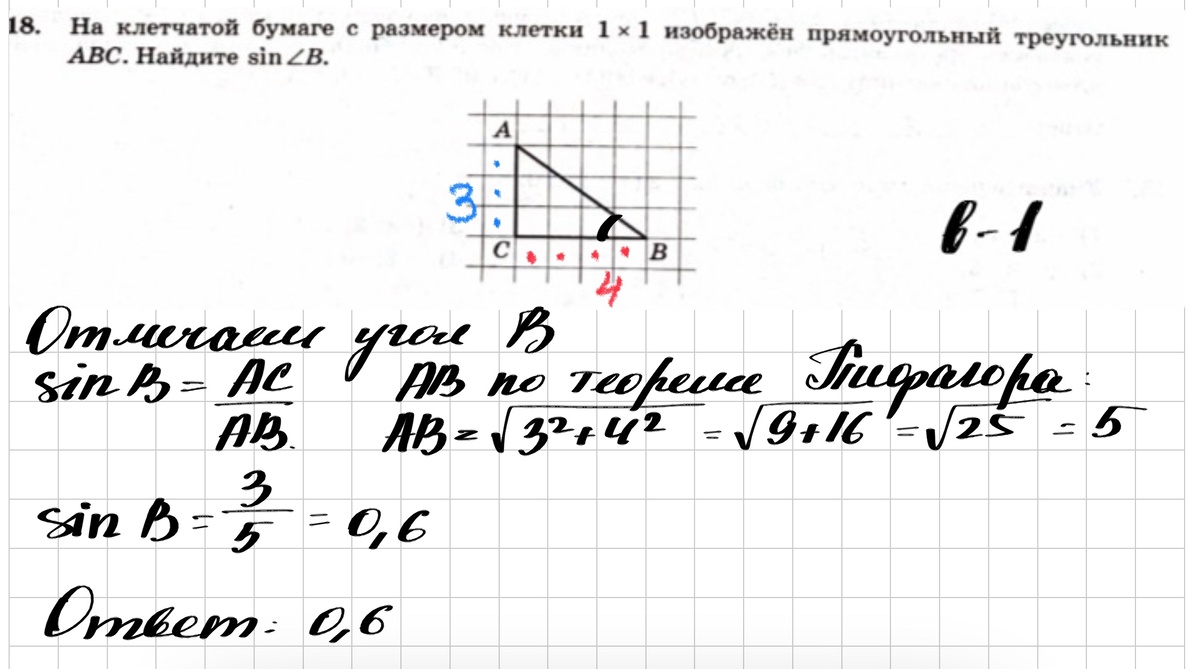 18. На клетчатой бумаге с размером клетки 1 × 1 изображён прямоугольный треугольник
ABC. Найдите sin ∠B.
A
3
C
B
4
в-1
Отмечаем угол B
sin B = AC/AB. AB по теореме Пифагора:
AB = √3²+4² = √9+16 = √25 = 5
sin B = 3/5 = 0,6
Ответ: 0,6